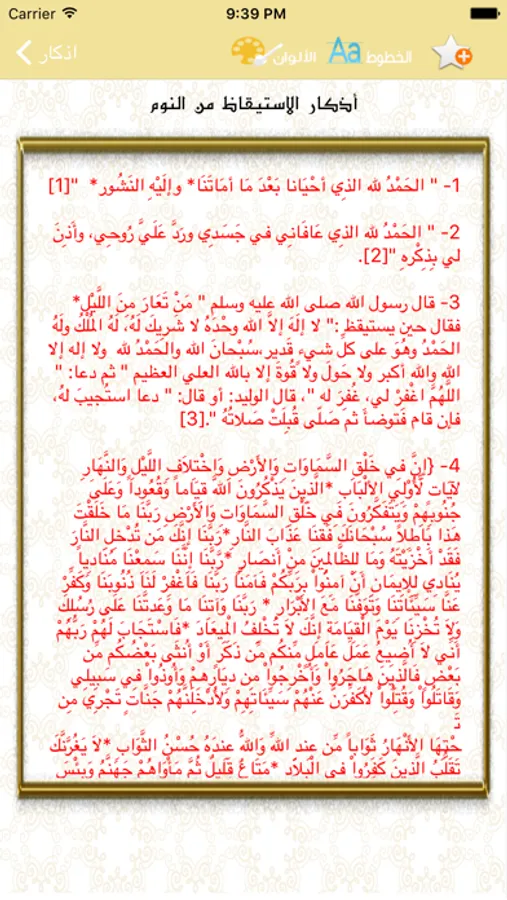 Carrier 9:39 PM
اذكار الألوان Aa الخطوط
أذكار الاستيقاظ من النوم
1- " الحَمْدُ لله الذِي أحْيَانا بَعْدَ مَا أمَاتَنَا* وإلَيْهِ النَشُور* "[1]
2- " الحَمْدُ لله الذي عَافَانِي في جَسَدِي ورَدَّ عَلَيَّ رُوحِي، وأَذِنَ
لي بِذِكْرِهِ "[2].
3- قال رسول الله صلى الله عليه وسلم " مَنْ تَعَارَ مِنَ اللَّيْلِ*
فقال حين يستيقظ :" لا إلَهَ إلاَّ الله وحْدَهُ لا شريكَ لَهُ، لَهُ المُلْكُ ولَهُ
الحَمْدُ وهُوَ على كلِّ شيءٍ قَدير،سُبْحَانَ الله والحَمْدُ لله ولا إله إلا
الله والله أكبر ولا حَولَ ولا قُوةَ إلا بالله العلي العظيم " ثم دعا: "
اللَّهُمَّ اغْفْرْ لي، غُفِرَ له "، قال الوليد: أو قال: " دعا استُجِيبَ لهُ،
فإن قام فَتوضأ ثمَ صَلَّى قُبِلَتْ صَلاتُهُ ".[3]
4- {إنَّ في خَلْقِ السَّمَاوَاتِ وَالأَرْضِ وَاخْتِلاَفِ اللَّيْلِ وَالنَّهَارِ
لآيَاتٍ لِّأُوْلِي الألْبَابِ *الَّذِينَ يَذْكُرُونَ اللَّهَ قِيَاماً وَقُعُوداً وَعَلَىَ
جُنُوبِهِمْ وَيَتَفَكَّرُونَ فِي خَلْقِ السَّمَاوَاتِ وَالأَرْضِ رَبَّنَا مَا خَلَقْتَ
هَذا بَاطِلاً سُبْحَانَكَ فَقِنَا عَذَابَ النَّارِ*رَبَّنَا إِنَّكَ مَن تُدْخِلِ النَّارَ
فَقَدْ أَخْزَيْتَهُ وَمَا لِلظَّالِمِينَ مِنْ أَنصَارٍ *رَّبَّنَا إِنَّنَا سَمِعْنَا مُنَادِياً
يُنَادِي لِلإِيمَانِ أَنْ آمِنُواْ بِرَبِّكُمْ فَآمَنَّا رَبَّنَا فَاغْفِرْ لَنَا ذُنُوبَنَا وَكَفِّرْ
عَنَّا سَيِّئَاتِنَا وَتَوَفَّنَا مَعَ الأبْرَارِ * رَبَّنَا وَآتِنَا مَا وَعَدتَّنَا عَلَى رُسُلِكَ
وَلاَ تُخْزِنَا يَوْمَ الْقِيَامَةِ إِنَّكَ لاَ تُخْلِفُ الْمِيعَادَ *فَاسْتَجَابَ لَهُمْ رَبُّهُمْ
أَنِّي لاَ أُضِيعُ عَمَلَ عَامِلٍ مِّنكُم مِّن ذَكَرٍ أَوْ أُنثَى بَعْضُكُم مِّن
بَعْضٍ فَالَّذِينَ هَاجَرُواْ وَأُخْرِجُواْ مِن دِيَارِهِمْ وَأُوذُواْ فِي سَبِيلِي
وَقَاتَلُواْ وَقُتِلُواْ لأُكَفِّرَنَّ عَنْهُمْ سَيِّئَاتِهِمْ وَلأُدْخِلَنَّهُمْ جَنَّاتٍ تَجْرِي مِن
تَ
حْتِهَا الأَنْهَارُ ثَوَاباً مِّن عِندِ اللَّهِ وَاللَّهُ عِندَهُ حُسْنُ الثَّوَابِ *لاَ يَغُرَّنَّكَ
تَقَلُّبُ الَّذِينَ كَفَرُواْ فِي الْبِلاَدِ *مَتَاعٌ قَلِيلٌ ثُمَّ مَأْوَاهُمْ جَهَنَّمُ وَبِئْسَ